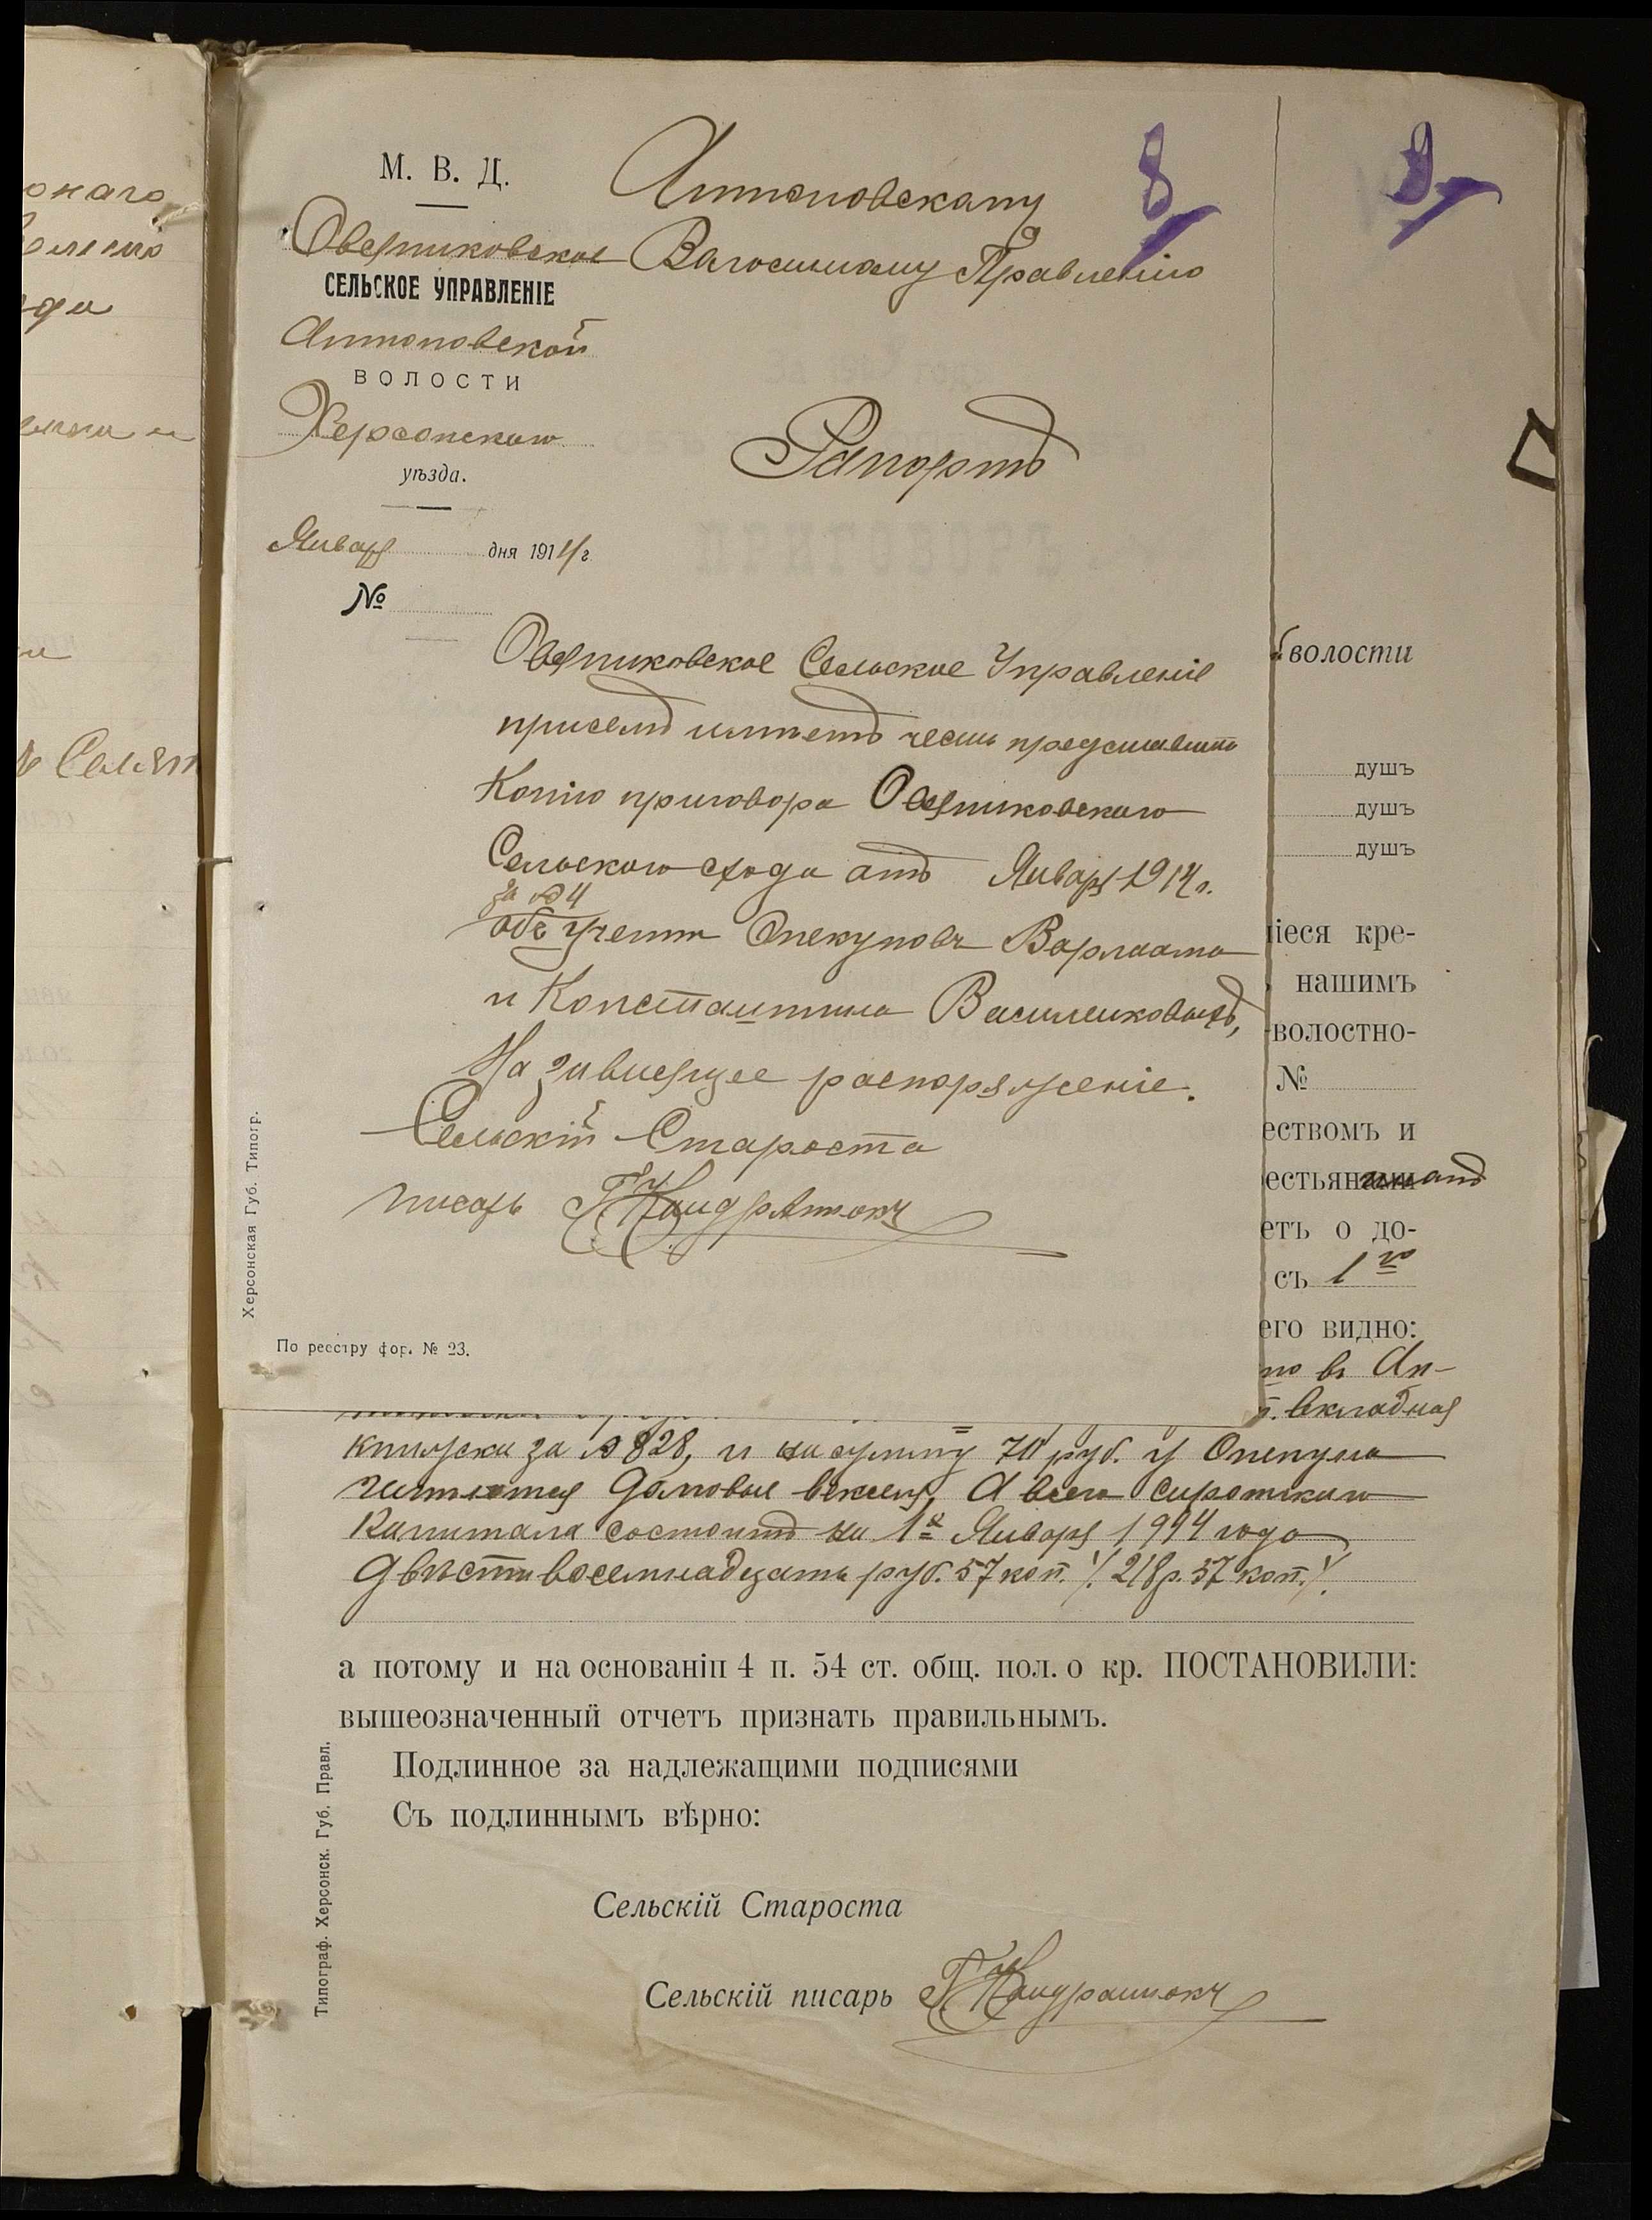 М. В. Д.
Овсяниковское
СЕЛЬСКОЕ УПРАВЛЕНІЕ
Антоновской
ВОЛОСТИ
Херсонскаго
уѣзда.
Января дня 1914 г.
№
Антоновскому
Волостному Правленію
8
9
Рапортъ
Овсяниковское Сельское Управленіе
присемъ имѣетъ честь представить
Копію приговора Овсяниковскаго
Сельскаго схода отъ Января 1914 г.
за № 4
объ учетѣ Опекуновъ Варлаама
и Константина Василенковыхъ,
На зависящее распоряженіе.
Сельскій Староста
писарь
Херсонская Губ. Типогр.
По реестру фор. № 23.
волости
душъ
душъ
душъ
іеся кре-
нашимъ
-волостно-
№
еством​ъ и
естьянами
етъ о до-
съ 1го
его видно:
но въ Ан-
вкладная
книжка за № 828, и на сумму 70 руб. у Опекуна
числятся долговые векселя, А всего сиротскаго
Капитала состоитъ на 1е Января 1914 года
двѣсти восемнадцать руб. 57 коп. /. 218 р. 57 коп. /.
а потому и на основаніи 4 п. 54 ст. общ. пол. о кр. ПОСТАНОВИЛИ:
вышеозначенный отчетъ признать правильнымъ.
Подлинное за надлежащими подписями
Съ подлиннымъ вѣрно:
Сельскій Староста
Сельскій писарь
Типограф. Херсонск. Губ. Правл.